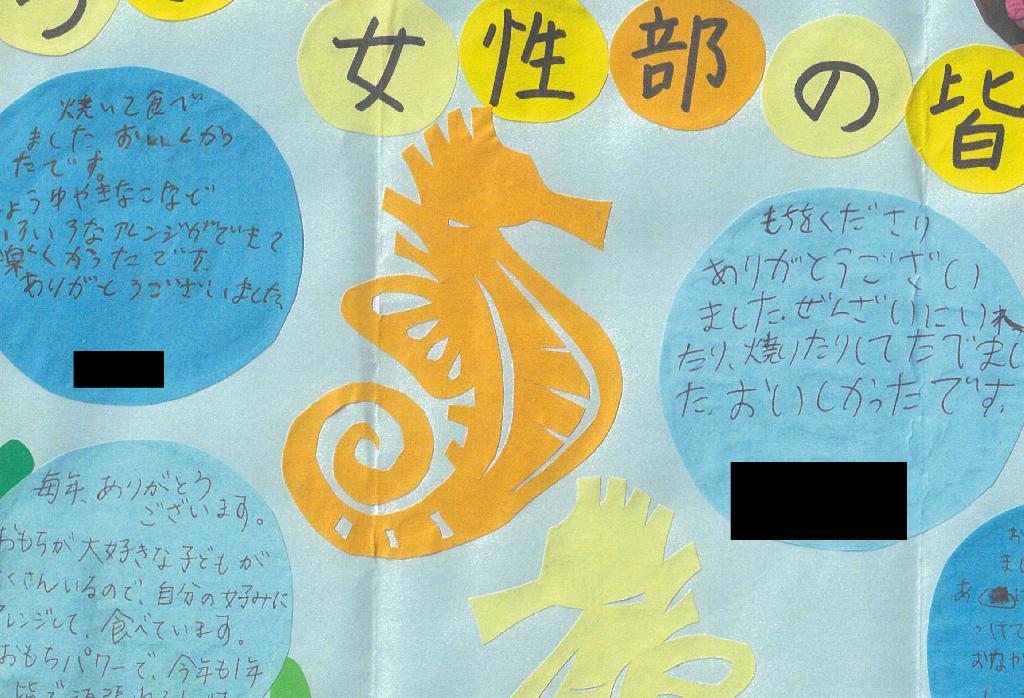 女性部の皆
焼いて食べ
ました おいしくかっ
たです。
しょうゆやきなこなど
いろいろなアレンジがでもて
楽くくかったです。
ありがとうございました
もちをくださり
ありがとうござい
ました。ぜんざいにいれ
たり、焼いたりしてたでまし
た。おいしかったです。
毎年、ありがとう
ございます。
おもちが大好きな子どもが
くさんいるので、自分の好みに
アレンジして、食べています。
おもちパワーで、今年も1年
お
まし
あ
つけて
おなか